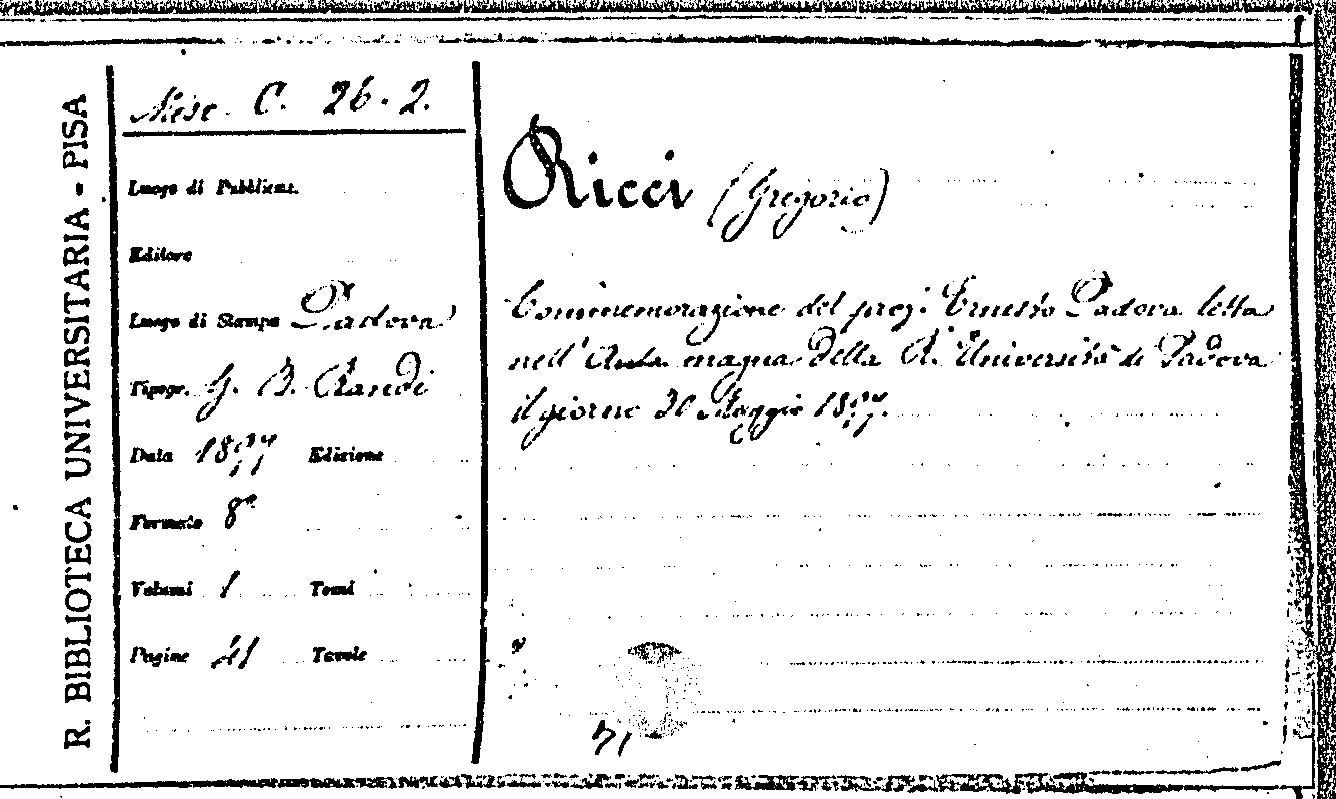 R. BIBLIOTECA UNIVERSITARIA - PISA
Misc. C. 26. 2.
Luogo di Pubblicaz.
Editore
Luogo di Stampa Padova
Tipogr. G. B. Randi
Data 1897 Edizione
Formato 8°
Volumi 1 Tomi
Pagine 41 Tavole
Ricci (Gregorio)
Commemorazione del prof. Ernesto Padova letta
nell'Aula magna della R. Università di Padova
il giorno 30 Maggio 1897.
71